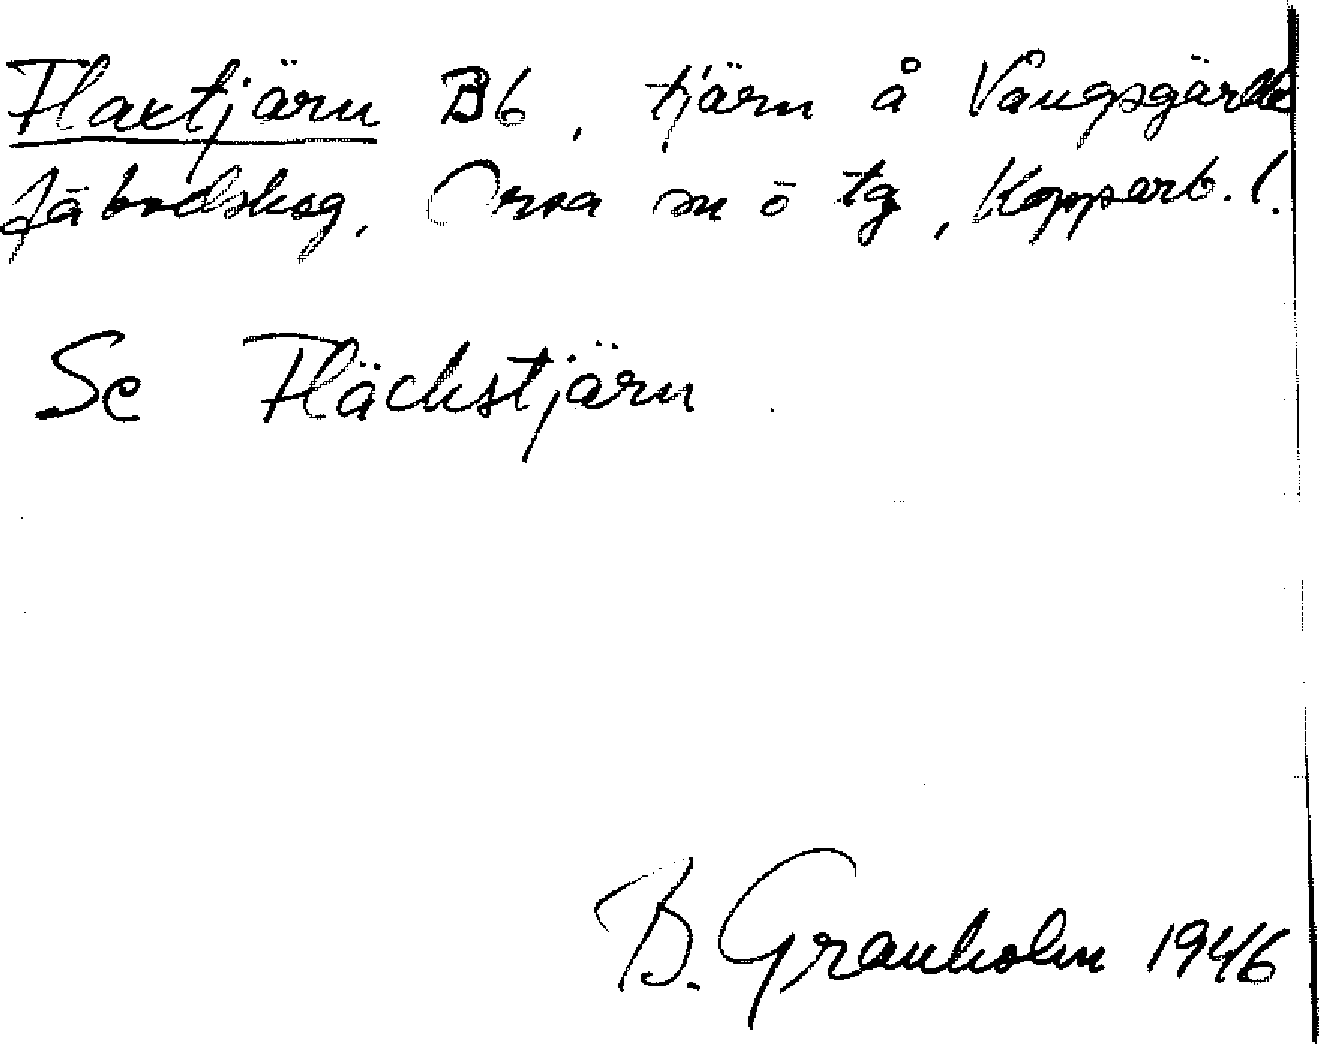 Flaxtjärn B6, tjärn å Vångsgärde
fäbodskog, Orsa m ö tg, Kopparb. l.
Se Fläckstjärn
B. Granholm 1946